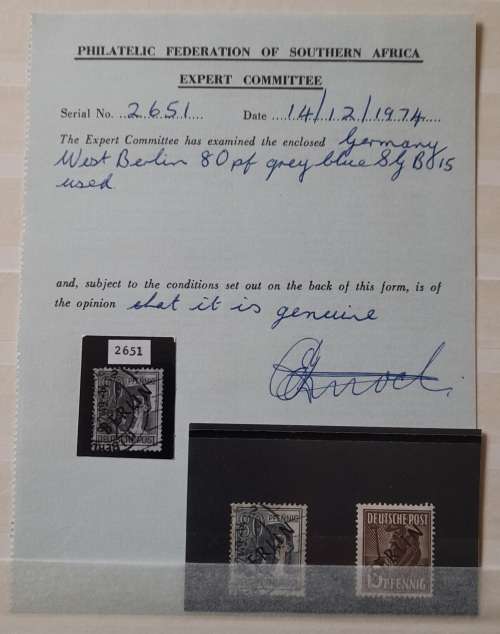 PHILATELIC FEDERATION OF SOUTHERN AFRICA
EXPERT COMMITTEE
Serial No. 2651 Date 14/12/1974
The Expert Committee has examined the enclosed Germany
West Berlin 80pf grey blue SG B015
used
and, subject to the conditions set out on the back of this form, is of
the opinion that it is genuine
2651
BERLIN
DEUTSCHE POST
BERLIN
DEUTSCHE POST
BERLIN
15 PFENNIG